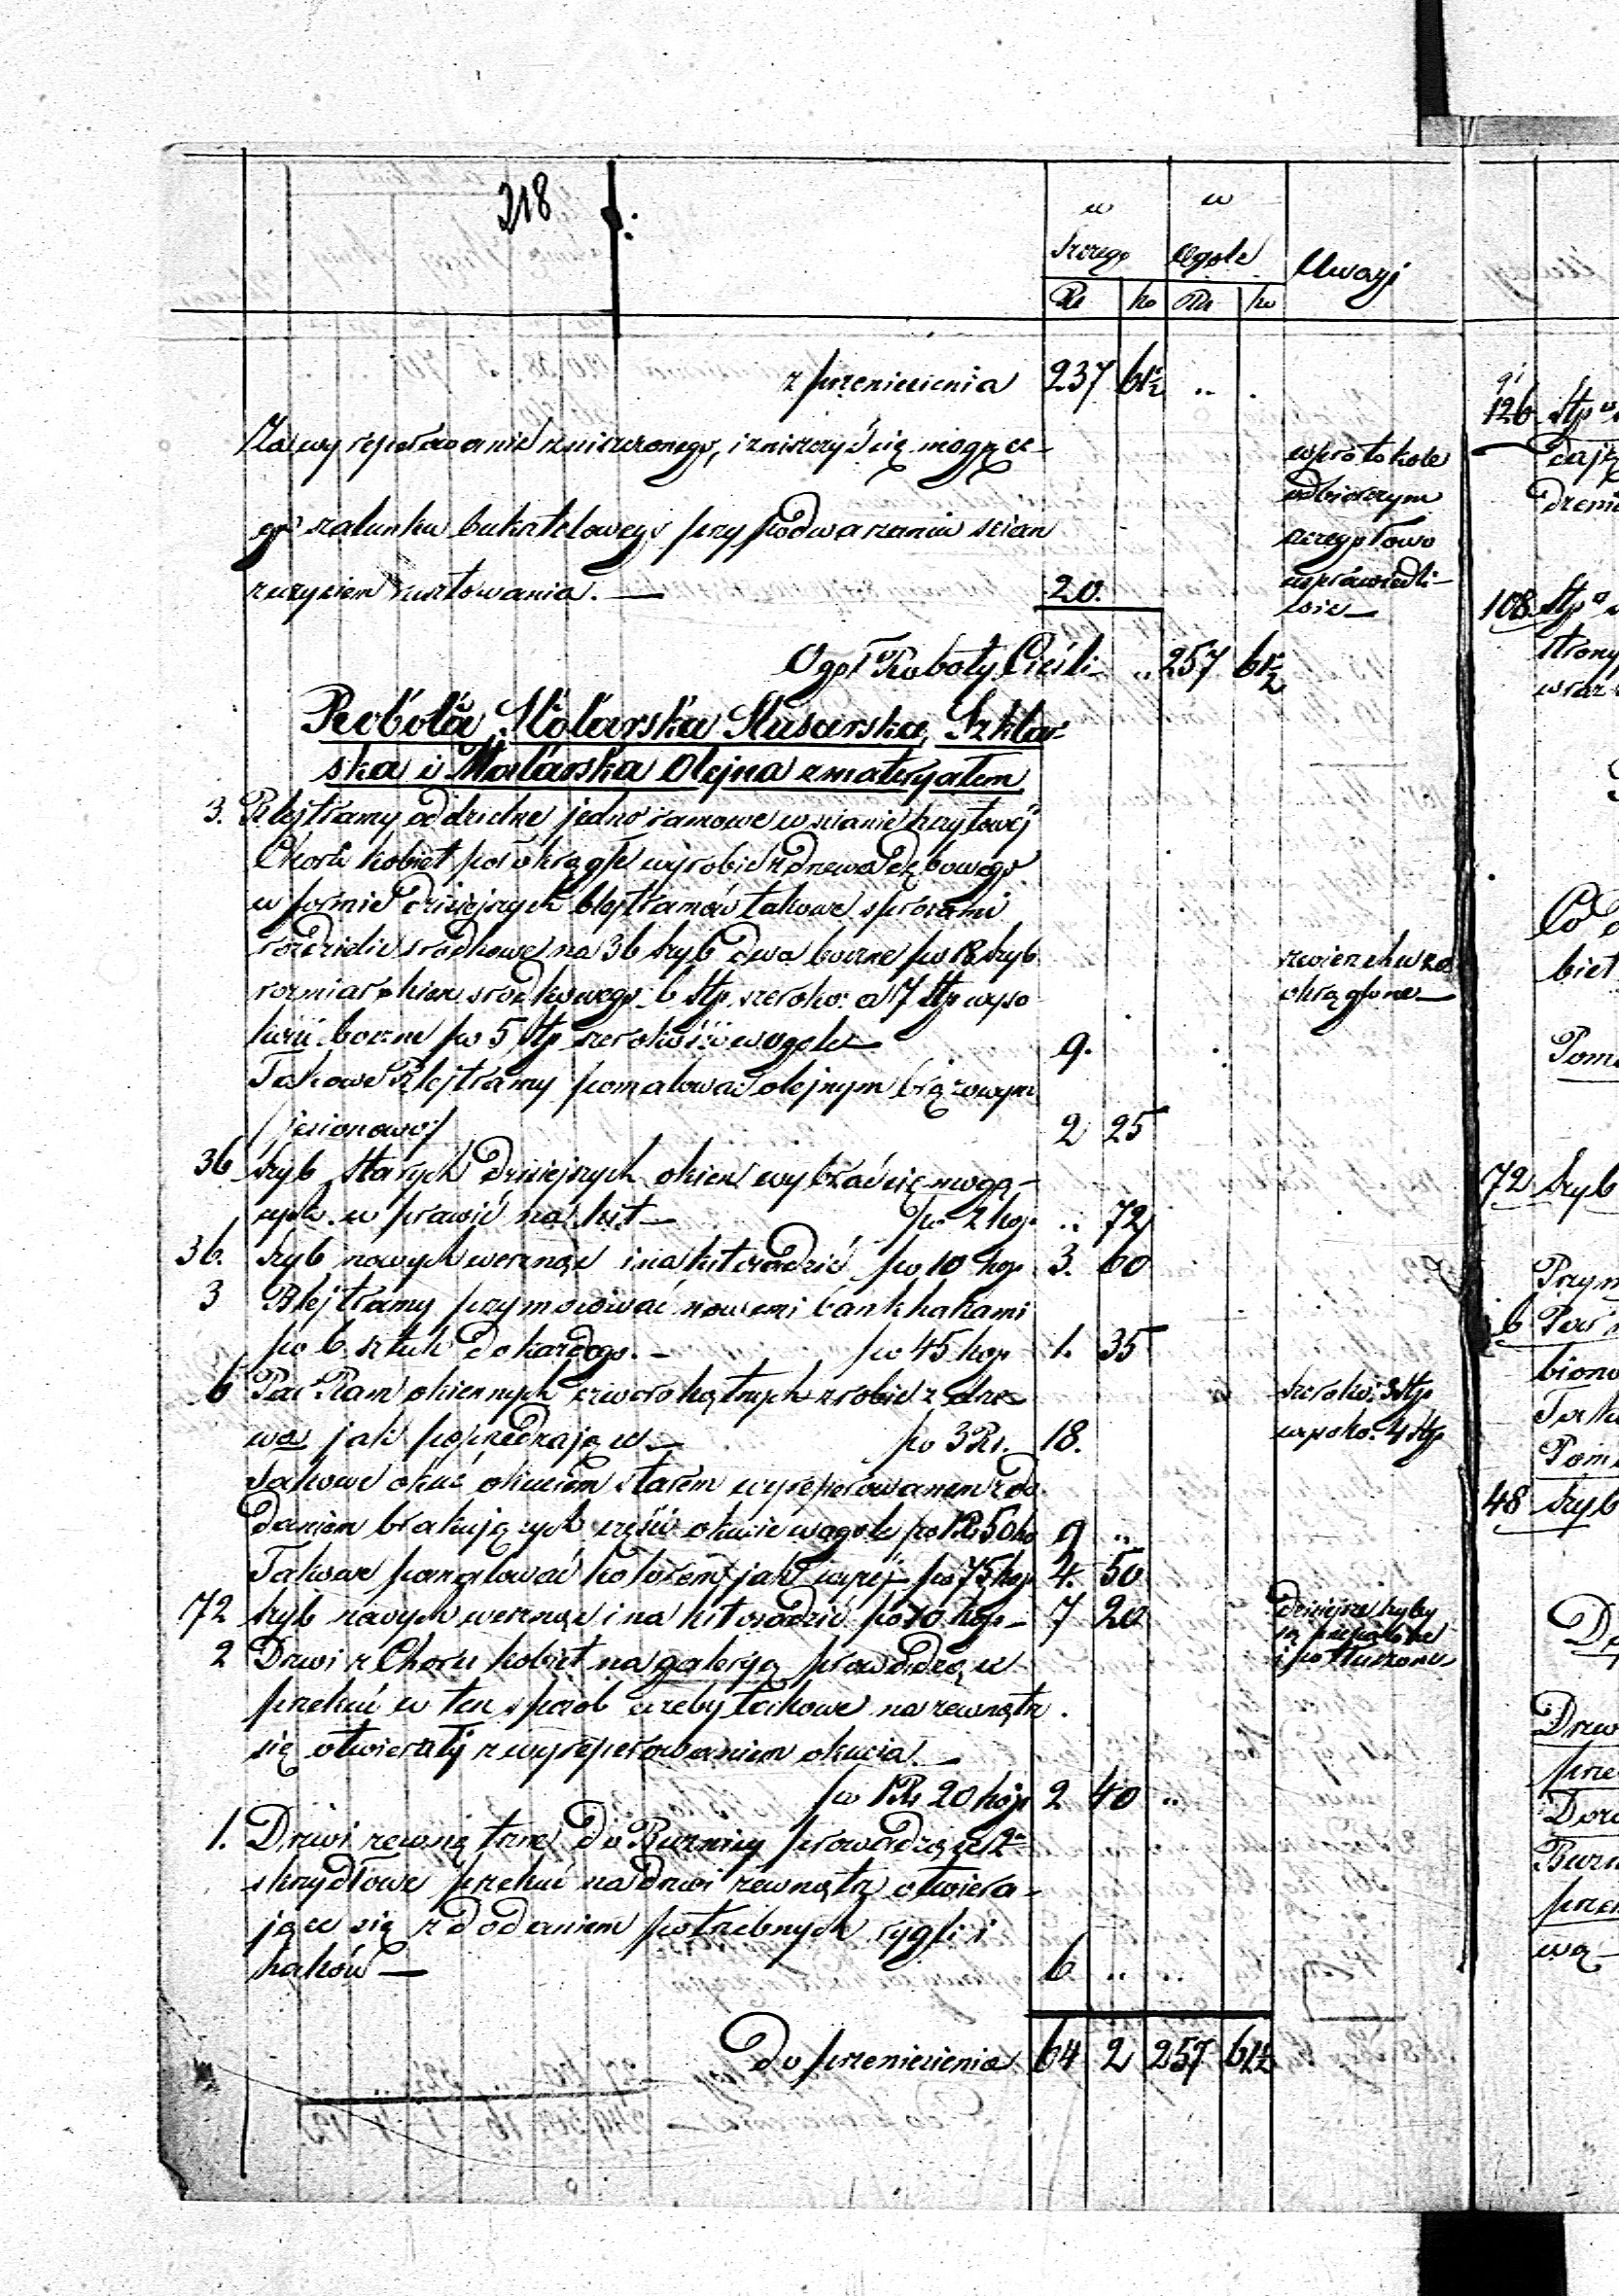 218
w
w
Szczegó
Ogole
Uwagi
Rs ko Rs ko
z przeniesienia 237 61½ ..
Za wyreperowanie zniszczonego, i zniszczyć się mogące-
go szalunku buksztelowego przy podważaniu scian
z użyciem rusztowania. — 20.
w protokole
odbiorczym
szczegółowo
usprawiedli-
wić —
Ogół Roboty Cieśli .. 257 61½
Robota Stolarska Slusarska, Szklar-
ska i Malarska Olejna z materyałem
3. Blejtramy oddzielne jedno ramowe w scianie szczytowej
Choru kobiet poł okrągłe wyrobić z drzewa dębowego
w formie dzisiejszych blejtramów takowe szprosami
rozdzielić srodkowe na 36 szyb dwa boczne po 18 szyb
rozmiar okien srodkowego 6 stp. szeroko: a 7 stp wyso
kości boczne po 5 stp szerokości w ogole — 9.
z wierzchu za
okrąglone —
Takowe Blejtramy pomalować olejnym brązowym
/jesionowo/ 2 25
36 szyb starych dzisiejszych okien wybrać się mogą-
cych w prawić na kit — po 2 kop .. 72
36. szyb nowych werznąć i na kit osadzić po 10 kop 3. 60
3 Blejtramy przymocować nowemi bankhakami
po 6 sztuk do każdego. — po 45 kop 1. 35
6 Par Ram okiennych czworokątnych zrobić z drze-
wa jak poprzedzające — po 3 Rs. 18.
szeroko: 3 stp
wysoko. 4 stp
Takowe okuć okuciem starem wyreperowanem z do
daniem brakujących części okucie w ogole po 1 Rs 50 ko 9 ..
Takowe pomalować kolorem jak wyżej po 75 kop 4. 50
72 szyb nowych werznąć i na kit osadzić po 10 kop — 7 20
dzisiejsze szyby
są przepalone
i potłuczone
2 Drzwi z Choru kobiet na galeryą prowadzące
przekuć w ten sposób ażeby takowe na zewnątrz
się otwierały z wyreperowaniem okucia —
po 1 Rs 20 kop 2 40 ..
1. Drzwi zewnętrzne do Buznicy prowadzące 2-
skrzydłowe przekuć na drzwi zewnątrz otwiera-
jące się z dodaniem potrzebnych rygli i
haków — 6 .. ..
Do przeniesienia 64 2 257 61½
126 Stp
108 Stp
strony
wraz
biet
72 szyb
6 Par
48 szyb